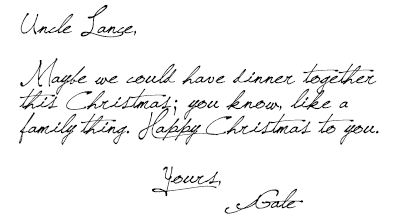 Uncle Lance,
Maybe we could have dinner together
this Christmas; you know, like a
family thing. Happy Christmas to you.
Yours,
Gale